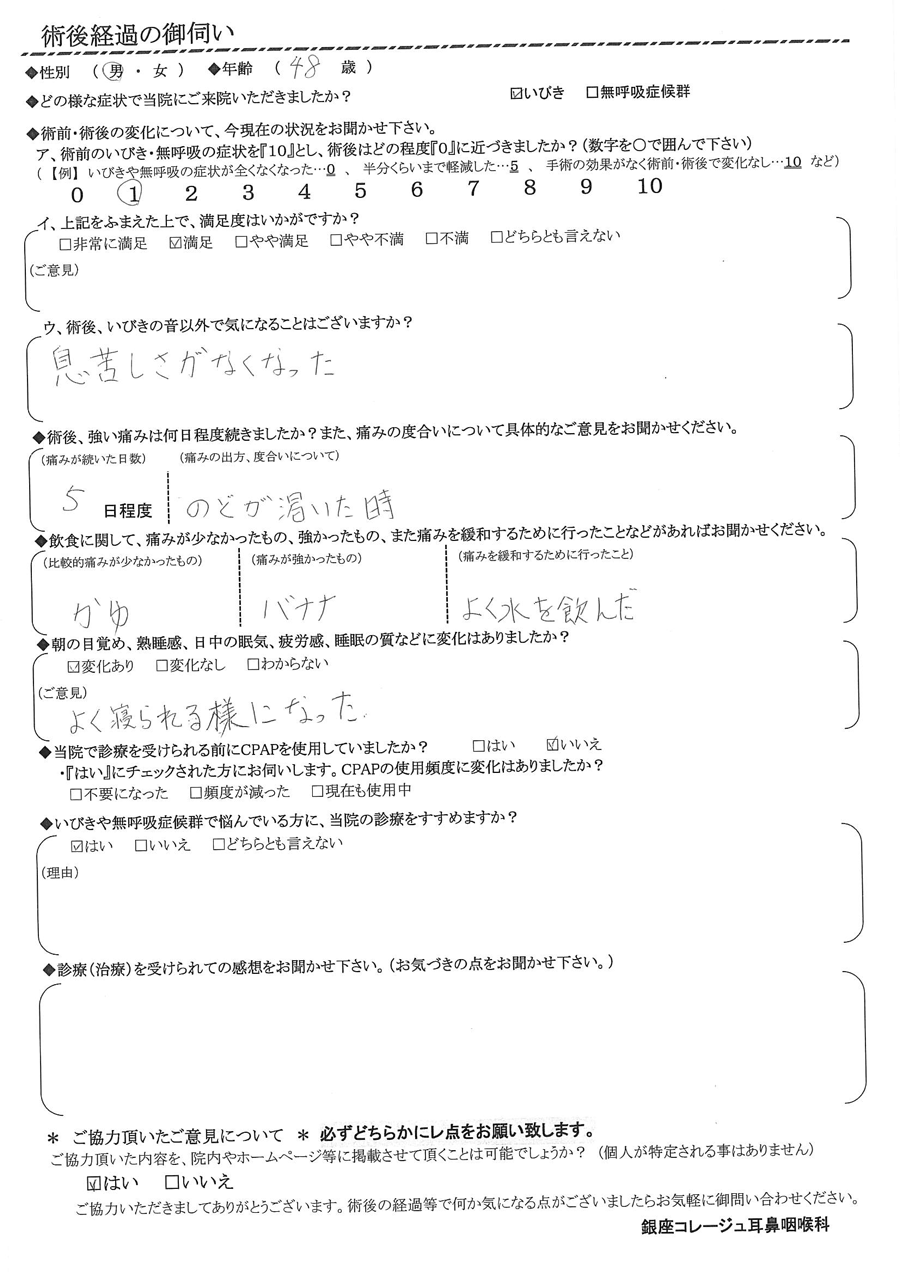 術後経過の御伺い
◆性別 （ 男 ・ 女 ） ◆年齢 （ 48 歳 ）
◆どの様な症状で当院にご来院いただきましたか？ ☑いびき □無呼吸症候群
◆術前・術後の変化について、今現在の状況をお聞かせ下さい。
ア、術前のいびき・無呼吸の症状を『10』とし、術後はどの程度『0』に近づきましたか？（数字を〇で囲んで下さい）
（【例】 いびきや無呼吸の症状が全くなくなった…0 、 半分くらいまで軽減した…5 、 手術の効果がなく術前・術後で変化なし…10 など）
0 1 2 3 4 5 6 7 8 9 10
イ、上記をふまえた上で、満足度はいかがですか？
□非常に満足 ☑満足 □やや満足 □やや不満 □不満 □どちらとも言えない
（ご意見）
ウ、術後、いびきの音以外で気になることはございますか？
息苦しさがなくなった
◆術後、強い痛みは何日程度続きましたか？また、痛みの度合いについて具体的なご意見をお聞かせください。
（痛みが続いた日数） （痛みの出方、度合いについて）
5 日程度 のどが渇いた時
◆飲食に関して、痛みが少なかったもの、強かったもの、また痛みを緩和するために行ったことなどがあればお聞かせください。
（比較的痛みが少なかったもの） （痛みが強かったもの） （痛みを緩和するために行ったこと）
かゆ バナナ よく水を飲んだ
◆朝の目覚め、熟睡感、日中の眠気、疲労感、睡眠の質などに変化はありましたか？
☑変化あり □変化なし □わからない
（ご意見）
よく寝られる様になった.
◆当院で診療を受けられる前にCPAPを使用していましたか？ □はい ☑いいえ
・『はい』にチェックされた方にお伺いします。CPAPの使用頻度に変化はありましたか？
□不要になった □頻度が減った □現在も使用中
◆いびきや無呼吸症候群で悩んでいる方に、当院の診療をすすめますか？
☑はい □いいえ □どちらとも言えない
（理由）
◆診療（治療）を受けられての感想をお聞かせ下さい。（お気づきの点をお聞かせ下さい。）
＊ ご協力頂いたご意見について ＊ 必ずどちらかにレ点をお願い致します。
ご協力頂いた内容を、院内やホームページ等に掲載させて頂くことは可能でしょうか？ （個人が特定される事はありません）
☑はい □いいえ
ご協力いただきましてありがとうございます。術後の経過等で何か気になる点がございましたらお気軽に御問い合わせください。
銀座コレージュ耳鼻咽喉科